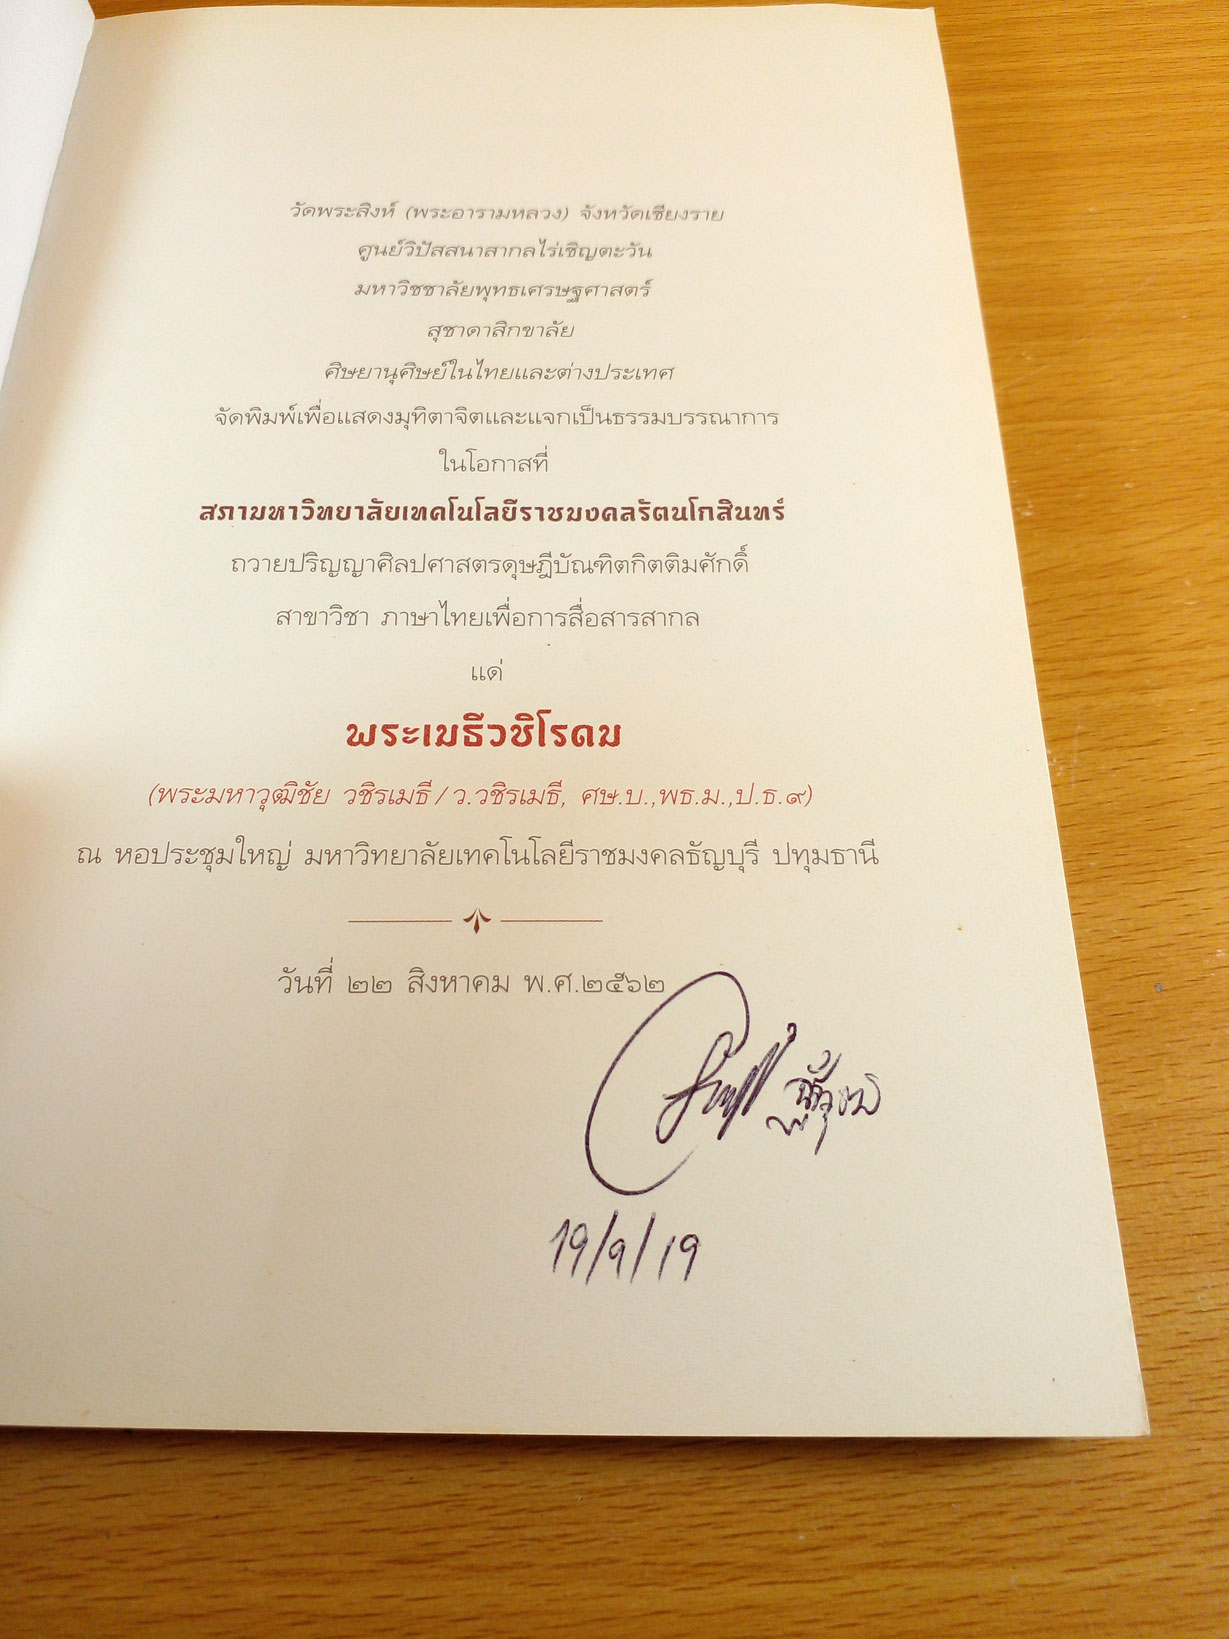 วัดพระสิงห์ (พระอารามหลวง) จังหวัดเชียงราย
ศูนย์วิปัสสนาสากลไร่เชิญตะวัน
มหาวิชชาลัยพุทธเศรษฐศาสตร์
สุชาดาสิกขาลัย
ศิษยานุศิษย์ในไทยและต่างประเทศ
จัดพิมพ์เพื่อแสดงมุทิตาจิตและแจกเป็นธรรมบรรณาการ
ในโอกาสที่
สภามหาวิทยาลัยเทคโนโลยีราชมงคลรัตนโกสินทร์
ถวายปริญญาศิลปศาสตรดุษฎีบัณฑิตกิตติมศักดิ์
สาขาวิชา ภาษาไทยเพื่อการสื่อสารสากล
แด่
พระเมธีวชิโรดม
(พระมหาวุฒิชัย วชิรเมธี / ว.วชิรเมธี, ศษ.บ.,พธ.ม.,ป.ธ.๙)
ณ หอประชุมใหญ่ มหาวิทยาลัยเทคโนโลยีราชมงคลธัญบุรี ปทุมธานี
วันที่ ๒๒ สิงหาคม พ.ศ.๒๕๖๒
19/9/19